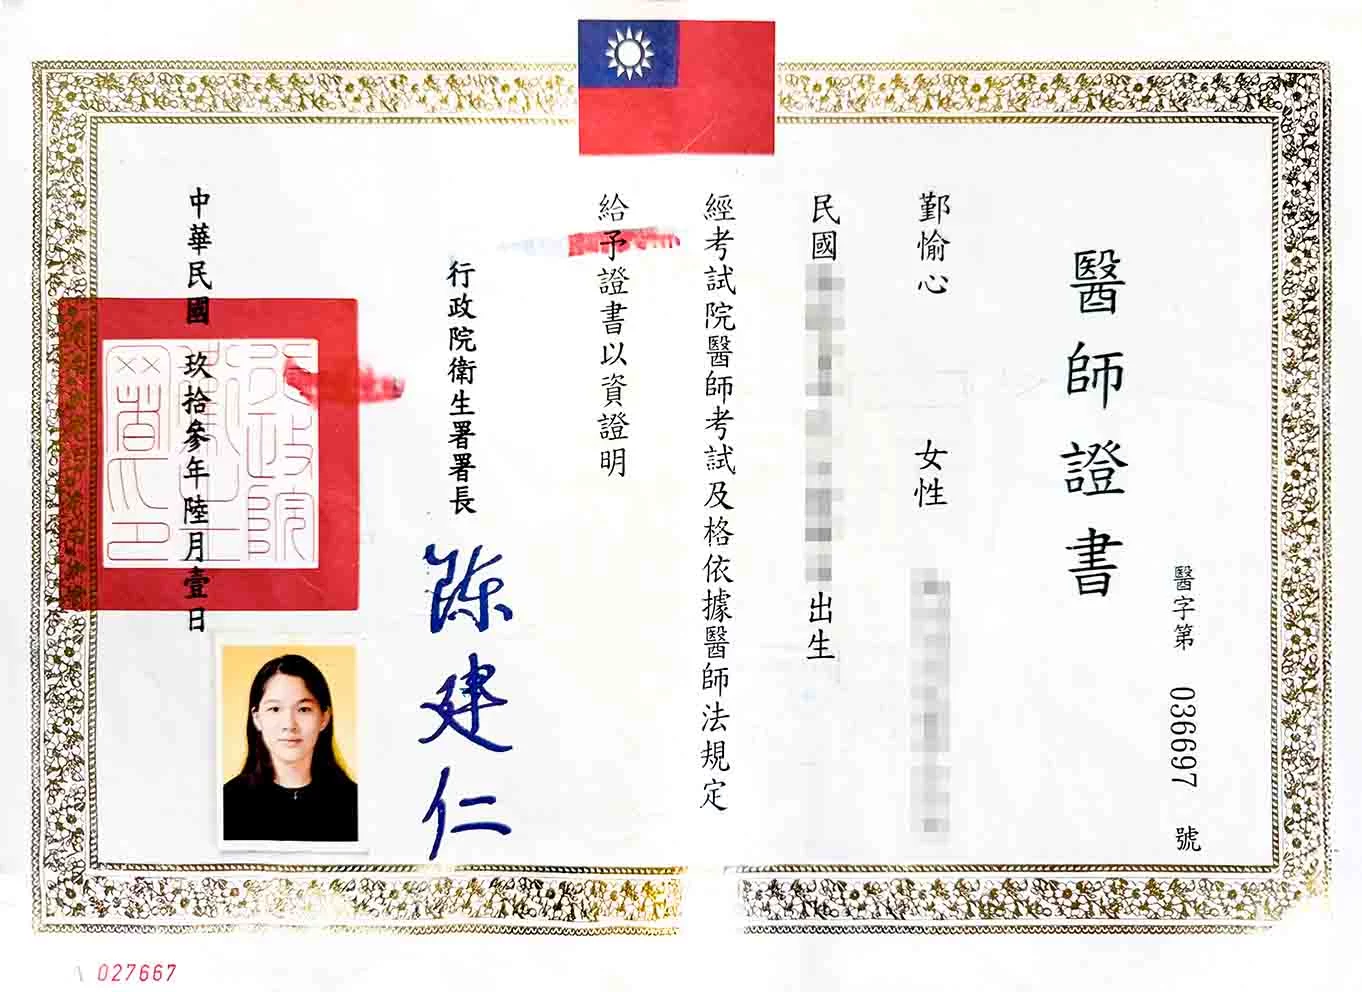 醫字第 036697 號
醫師證書
鄞愉心 女性
民國 出生
經考試院醫師考試及格依據醫師法規定
給予證書以資證明
行政院衛生署署長 陳建仁
中華民國玖拾參年陸月壹日
行政院
衛生
署印
027667